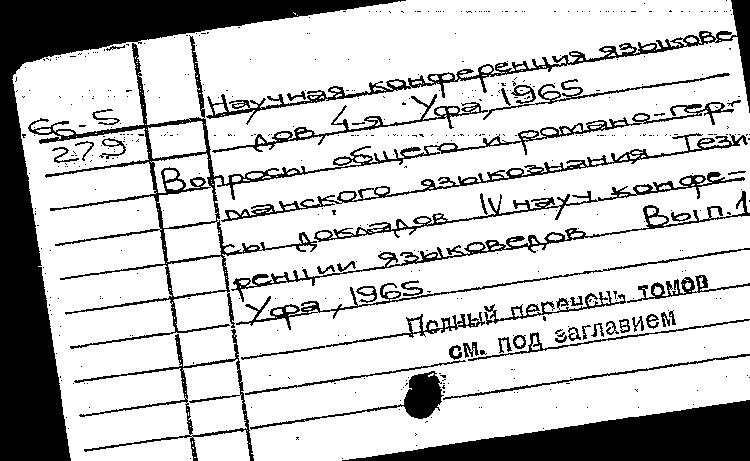 Научная конференция языкове-
дов, 4-я. Уфа, 1965
66-5
279
Вопросы общего и романо-гер-
манского языкознания. Тези-
сы докладов IV науч. конфе-
ренции языковедов. Вып. 1
Уфа, 1965.
Полный перечень томов
см. под заглавием